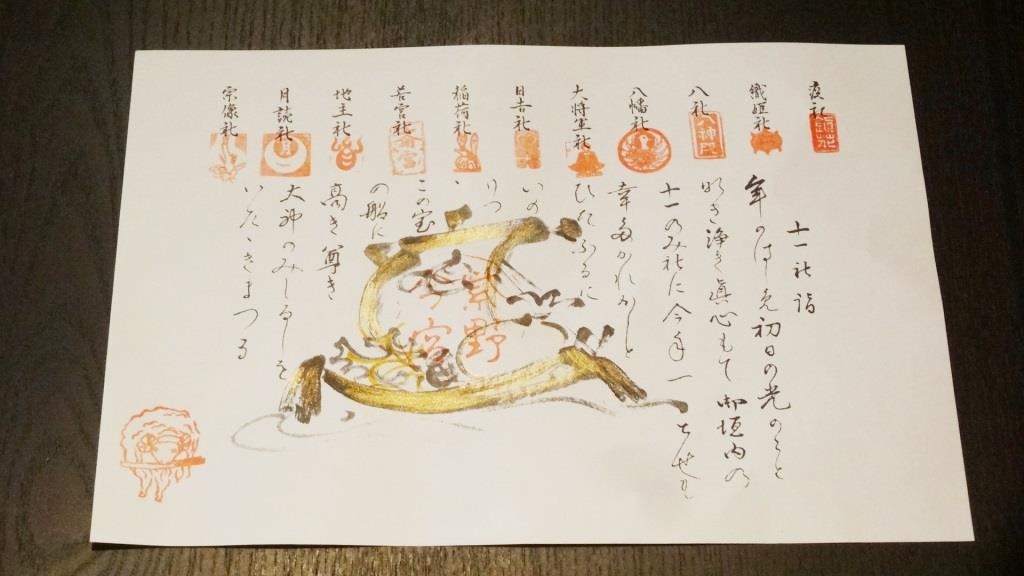 疫社
織姫社
八社
八幡社
大将軍社
日吉社
稲荷社
若宮社
地主社
月読社
宗像社
十一社詣
年のはしめ初日の光のこと
明き浄き真心もて御垣内の
十一のみ社に今年一とせも
幸多かれかしと
ひたふるに
いの
りつ
ゝ
この宝
の船に
高き尊き
大神のみしるしを
いたゝきまつる
紫野
今宮